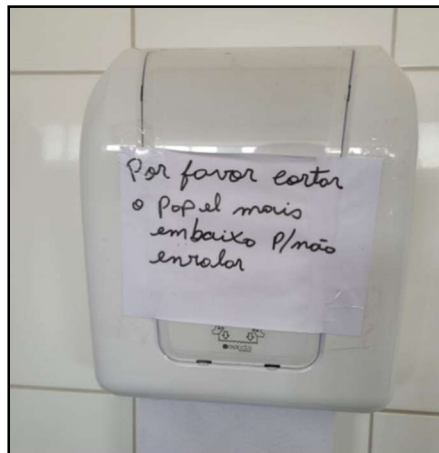 Por favor cortar
o papel mais
embaixo p/não
enrolar